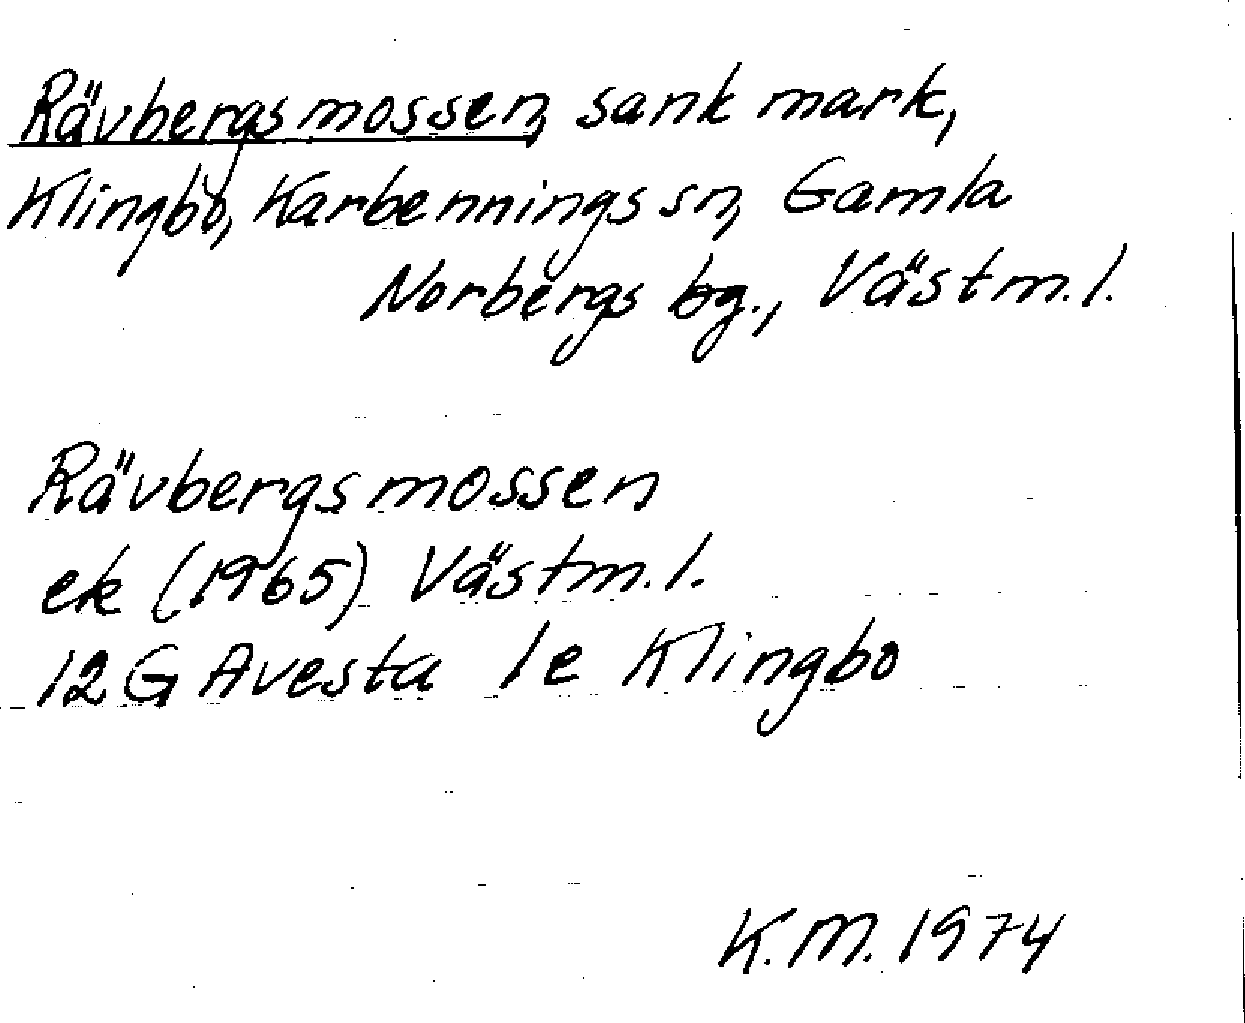 Rävbergsmossen, sank mark,
Klingbo, Karbennings sn, Gamla
Norbergs bg., Västm.l.
Rävbergsmossen
ek (1965) Västm.l.
12G Avesta 1e Klingbo
K.M. 1974